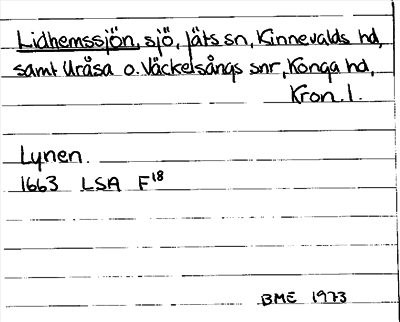 Lidhemssjön, sjö, Jäts sn, Kinnevalds hd,
samt Uråsa o. Väckelsångs snr, Konga hd,
Kron. l.
Lynen.
1663 LSA F18
BME 1973